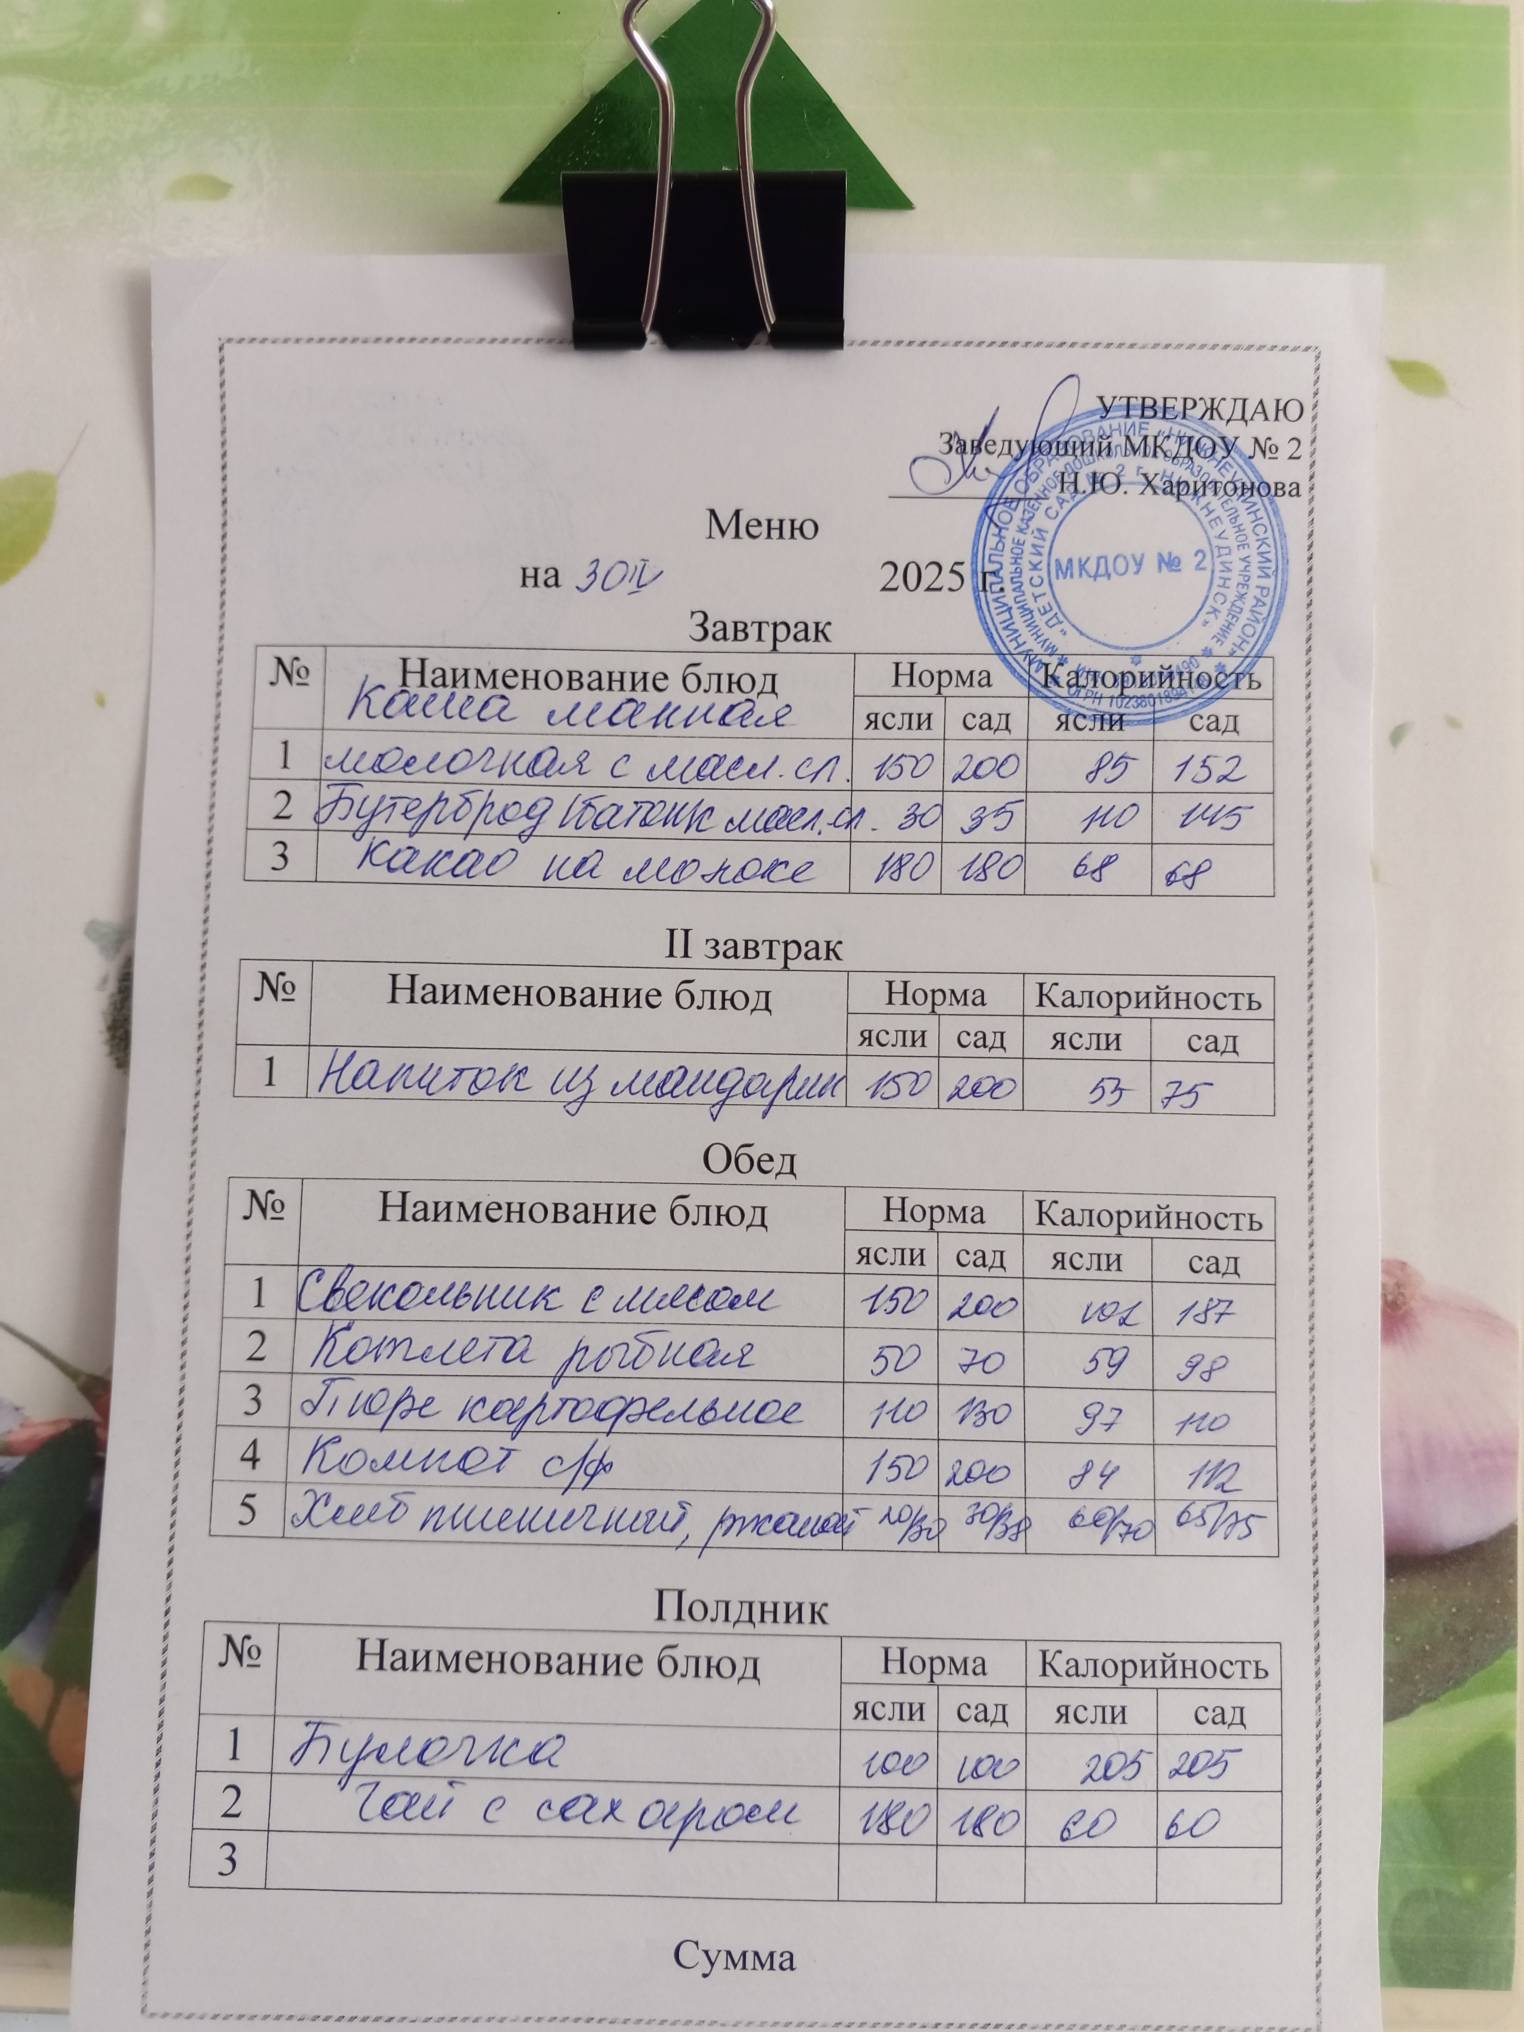 УТВЕРЖДАЮ
Заведующий МКДОУ № 2
Н.Ю. Харитонова
МКДОУ № 2
Меню
на 30 IV 2025 г.
Завтрак
№ Наименование блюд Норма Калорийность
ясли сад ясли сад
Каша манная
1 молочная с масл. сл. 150 200 85 152
2 Бутерброд (батон к масл. сл. 30 35 110 145
3 Какао на молоке 180 180 68 68
II завтрак
№ Наименование блюд Норма Калорийность
ясли сад ясли сад
1 Напиток из мандарин 150 200 55 75
Обед
№ Наименование блюд Норма Калорийность
ясли сад ясли сад
1 Свекольник с мясом 150 200 102 187
2 Котлета рыбная 50 70 59 98
3 Пюре картофельное 110 130 97 110
4 Компот с/ф 150 200 84 112
5 Хлеб пшеничный, ржаной 20/30 30/38 60/70 65/75
Полдник
№ Наименование блюд Норма Калорийность
ясли сад ясли сад
1 Булочка 100 100 205 205
2 Чай с сахаром 180 180 60 60
3
Сумма